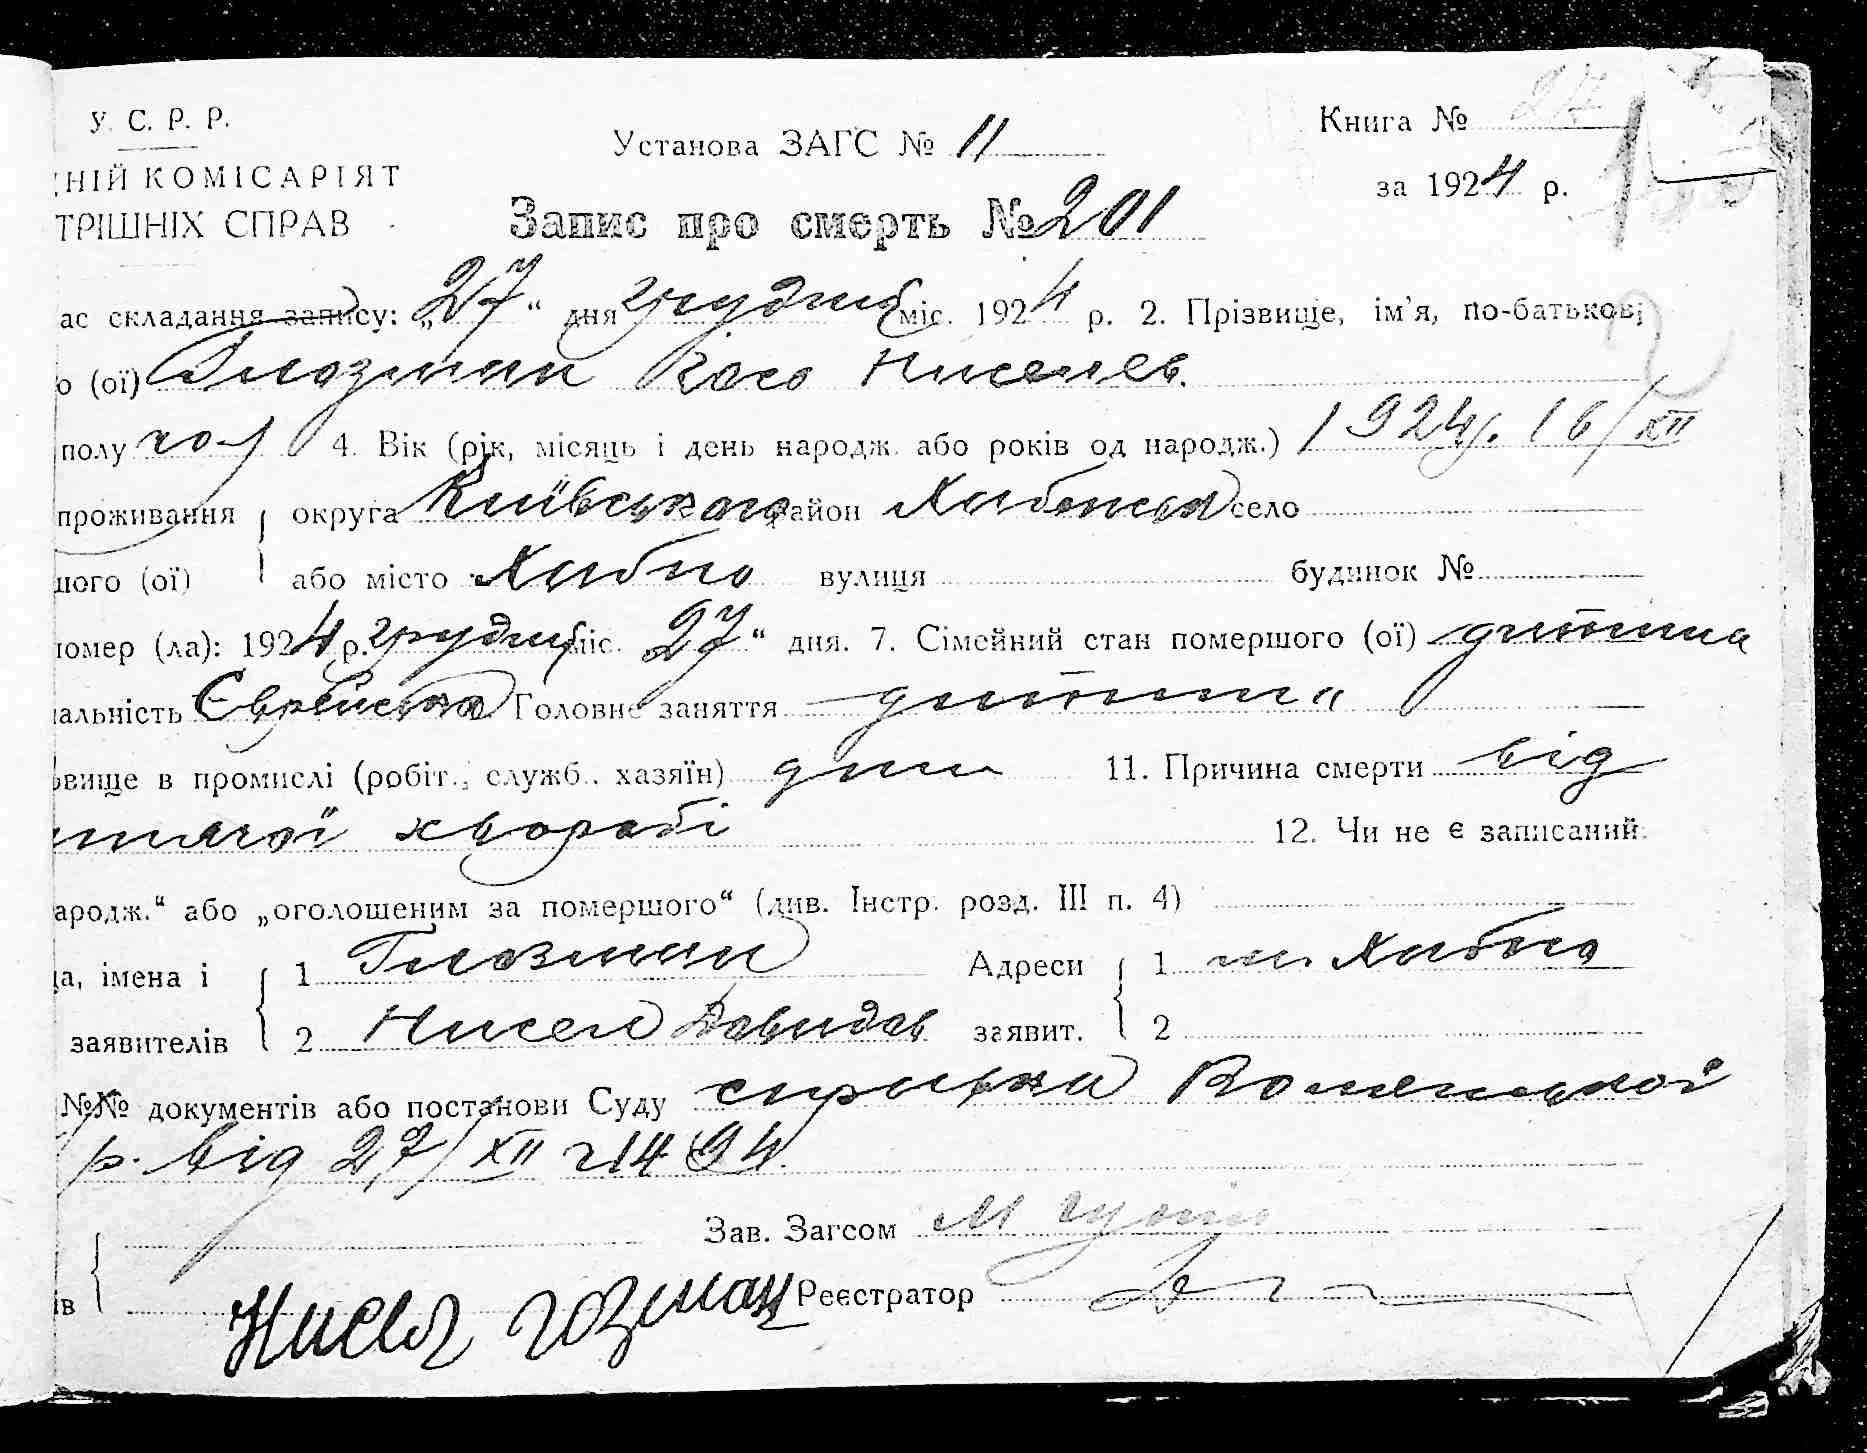 У. С. Р. Р.
НІЙ КОМІСАРІЯТ
ТРІШНІХ СПРАВ
Установа ЗАГС № 11
Книга № 27
за 1924 р.
Запис про смерть № 201
ас складання запису: „27“ дня грудня міс. 1924 р. 2. Прізвище, ім'я, по-батькові
о (ої) Глозман Ниселев.
полу чол 4. Вік (рік, місяць і день народж. або років од народж.) 1924р. 16/XII
проживання округа Київського район Хабенськ село
шого (ої) або місто Хабно вулиця будинок №
помер (ла): 1924 р. грудня міс. 27“ дня. 7. Сімейний стан помершого (ої) дитина
альність Єврейська Головне заняття дитина
овище в промислі (робіт., служб., хазяїн) дит 11. Причина смерти від
тячої хвороби
12. Чи не є записаний
ародж.“ або „оголошеним за помершого“ (див. Інстр. розд. III п. 4)
а, імена і 1 Глозман Адреси 1 м. Хабно
заявителів 2 Нисел Давидов заявит. 2
№№ документів або постанови Суду справка
р. від 27/XII
Зав. Загсом М
ів Нисел Глозман Реєстратор